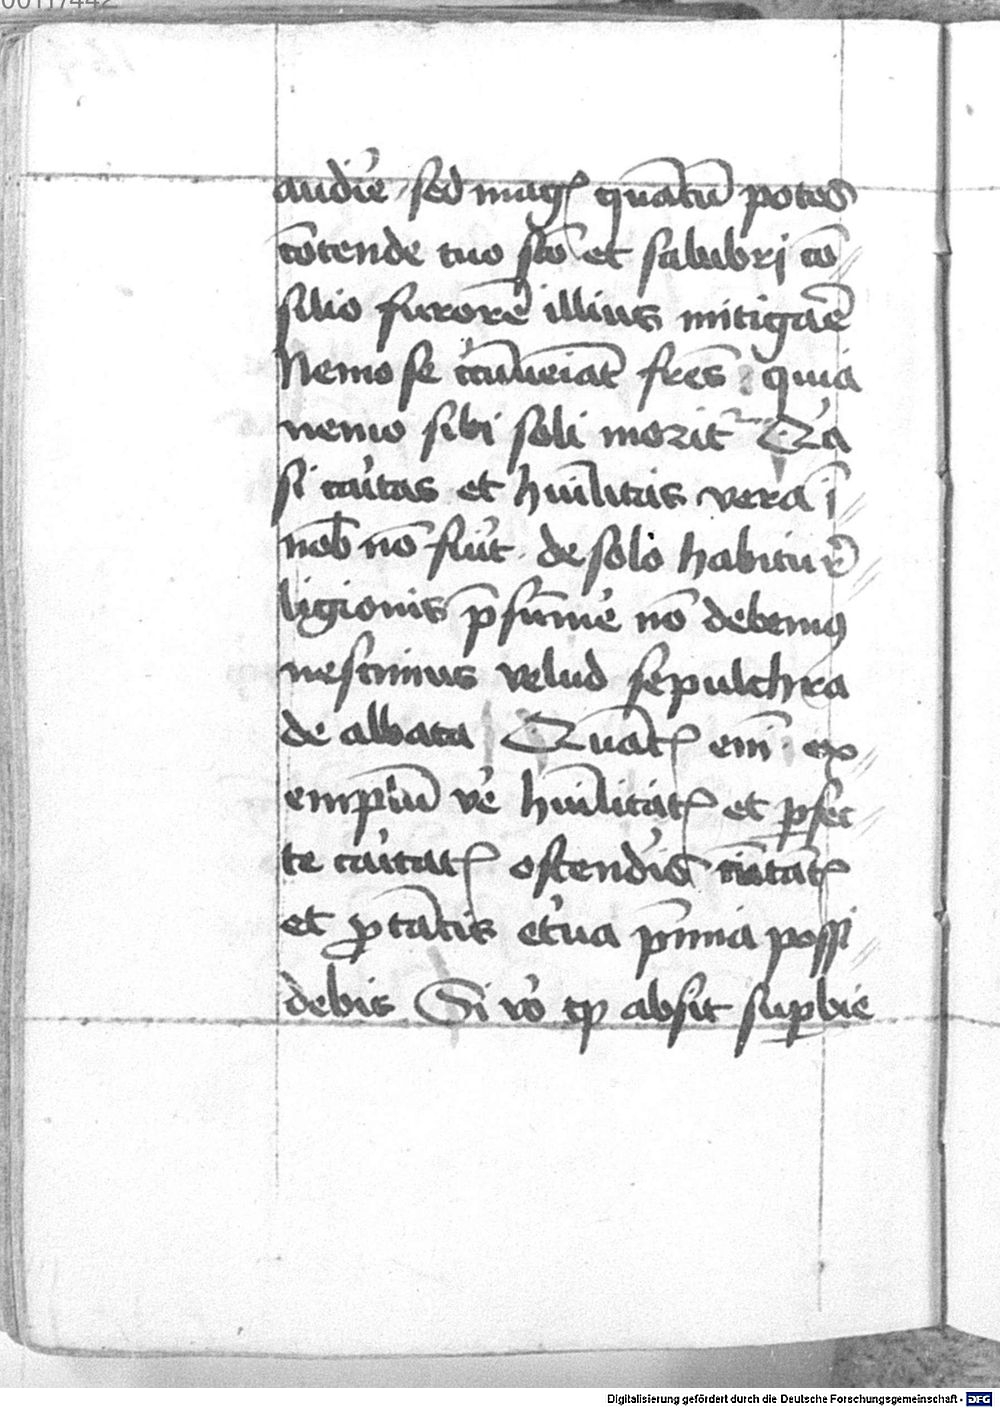 00117442
audiʼe sed magꝭ quātū potes
cōtende tuo scō et salubri cō
silio furorē illius mitigaē
Nemo se fr̄es quia
nemo sibi soli morit᷑ Qʼa
si caʼitas et hūilitas vera ī
nob̄ nō fiūt de solo habitu rē
ligionis p̄sūmʼe nō debemꝰ
ne simus velud sepulchra
de albata Quātꝭ em̄ ex
emplū vʼe hūilitatꝭ et ꝑfec
te caʼitatꝭ ostendʼis tātꝭ
et etʼna p̄mia possi
debis Si vʼo qꝫ absit suꝑbie
Digitalisierung gefördert durch die Deutsche Forschungsgemeinschaft - DFG